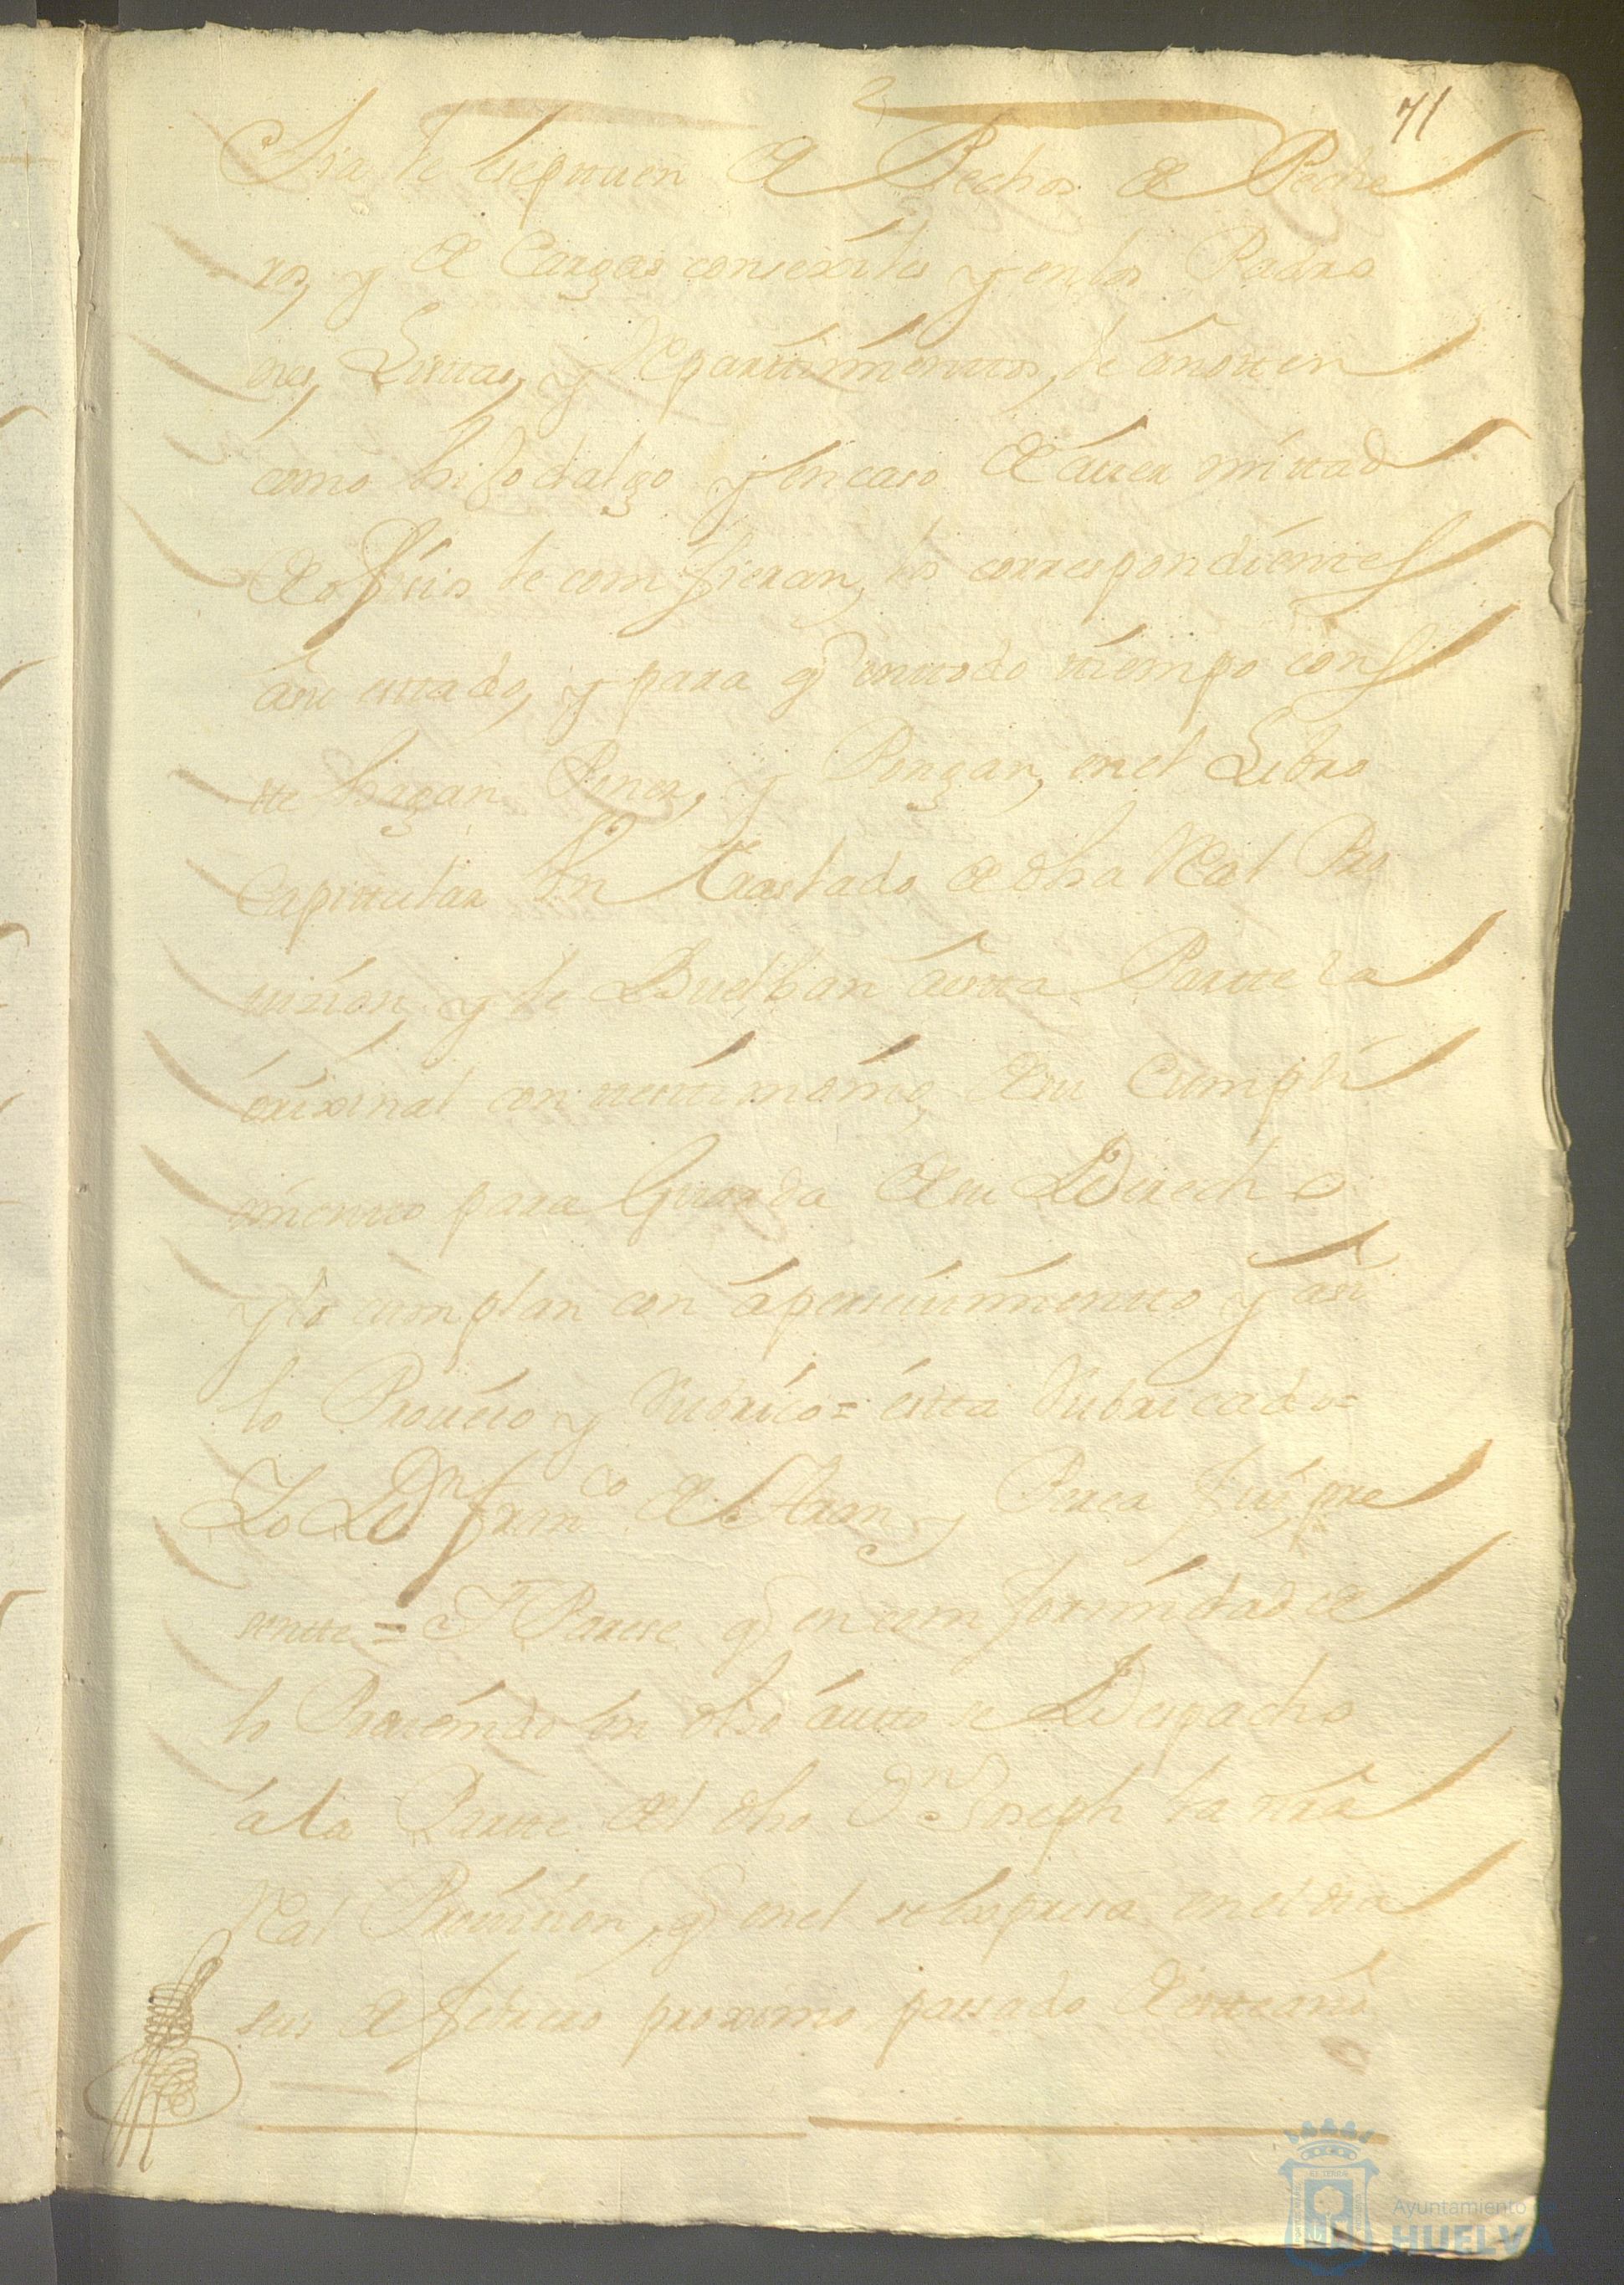 71
dha le lieputen de Pechos de Peche
ros, y de Cargas conserxiles y en los Padro
nes, Listtas, y Repartimienttos, le anotten
como hijodalgo y en caso de auer mittad
de ofisios le comfieran, los correspondientes
a su esttado, y para q̃ en ttodo ttiempo cons
tte hagan Poner, y Pongan, en el Libro
Capittular Vn Traslado de dha Real Pro
uision, y le Buelban a estta Partte la
orixinal con testtimonio, de su Cumpli
mientto para Guarda de su Derecho
y lo cumplan con apersiuimientto y asi
lo Proueio y Rubrico = estta Rubricado =
Yo Dn. franco. de Aran y Perea fui pre
sentte = Y Parese q̃ en comformidad de
lo Proueido en dho autto se Despacho
a la Partte del dho Dn. Joseph la nrâ
Real Prouision, q̃ en el se expresa en el dia
seis de febrero proximo passado de estte año
Ayuntamiento de
HUELVA